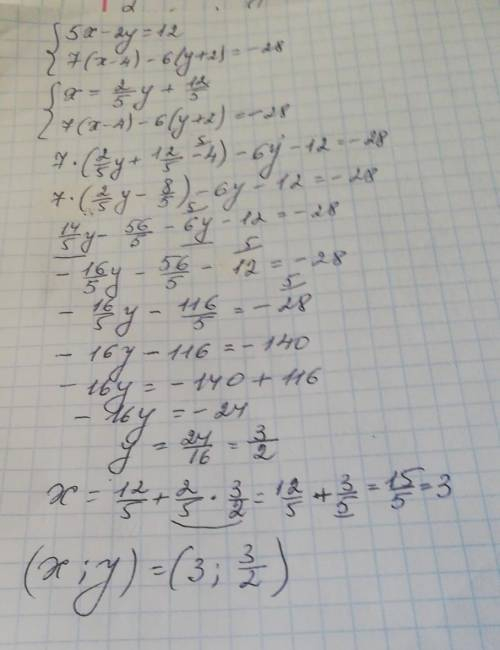 5x-2y=12
7(x-4)-6(y+2)=-28
x=2/5y+12/5
7(x-4)-6(y+2)=-28
7·(2/5y+12/5-4)-6y-12=-28
7·(2/5y-8/5)-6y-12=-28
14/5y-56/5-6y-12=-28
-16/5y-56/5-12=-28
-16/5y-116/5=-28
-16y-116=-140
-16y=-140+116
-16y=-24
y=24/16=3/2
x=12/5+2/5·3/2=12/5+3/5=15/5=3
(x;y)=(3;3/2)